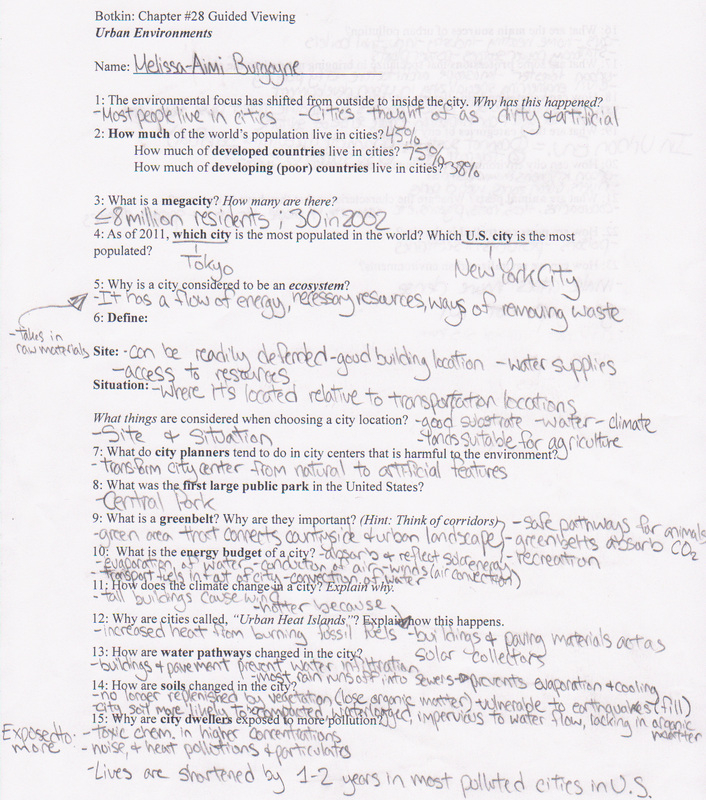 Botkin: Chapter #28 Guided Viewing
Urban Environments
Name: Melissa-Aimi Burgoyne
1: The environmental focus has shifted from outside to inside the city. Why has this happened?
-Most people live in cities -Cities thought of as dirty & artificial
2: How much of the world's population live in cities? 45%
How much of developed countries live in cities? 75%
How much of developing (poor) countries live in cities? 38%
3: What is a megacity? How many are there?
≤8 million residents; 30 in 2002
4: As of 2011, which city is the most populated in the world? Which U.S. city is the most
populated?
Tokyo
New York City
5: Why is a city considered to be an ecosystem?
-It has a flow of energy, necessary resources, ways of removing waste
-takes in
raw materials
6: Define:
Site: -can be readily defended -good building location -water supplies
-access to resources
Situation: -where it's located relative to transportation locations
What things are considered when choosing a city location? -good substrate -water -climate
-Site & Situation
suitable for agriculture
7: What do city planners tend to do in city centers that is harmful to the environment?
-transform city center from natural to artificial features
8: What was the first large public park in the United States?
-Central Park
9: What is a greenbelt? Why are they important? (Hint: Think of corridors) -safe pathways for animals
-green area that connects countryside & urban landscape -greenbelts absorb CO2
-recreation
10: What is the energy budget of a city? -absorb & reflect solar energy
-evaporation of water -conduction of air -winds (air convection)
-transport fuels in & out of city -convection of water
11: How does the climate change in a city? Explain why.
-tall buildings cause wind
-hotter because
12: Why are cities called, "Urban Heat Islands"? Explain how this happens.
-increased heat from burning fossil fuels -buildings & paving materials act as
solar collectors
13: How are water pathways changed in the city?
-buildings & pavement prevent water infiltration
-most rain runs off into sewers → prevents evaporation & cooling
14: How are soils changed in the city?
-no longer replenished by vegetation (lose organic matter) -vulnerable to earthquakes (fill)
-city soil more likely to compacted, interlarged, impervious to water flow, lacking in organic
matter
15: Why are city dwellers exposed to more pollution?
Exposed to
more
-toxic chem. in higher concentrations
-noise, & heat pollutions & particulates
-Lives are shortened by 1-2 years in most polluted cities in U.S.